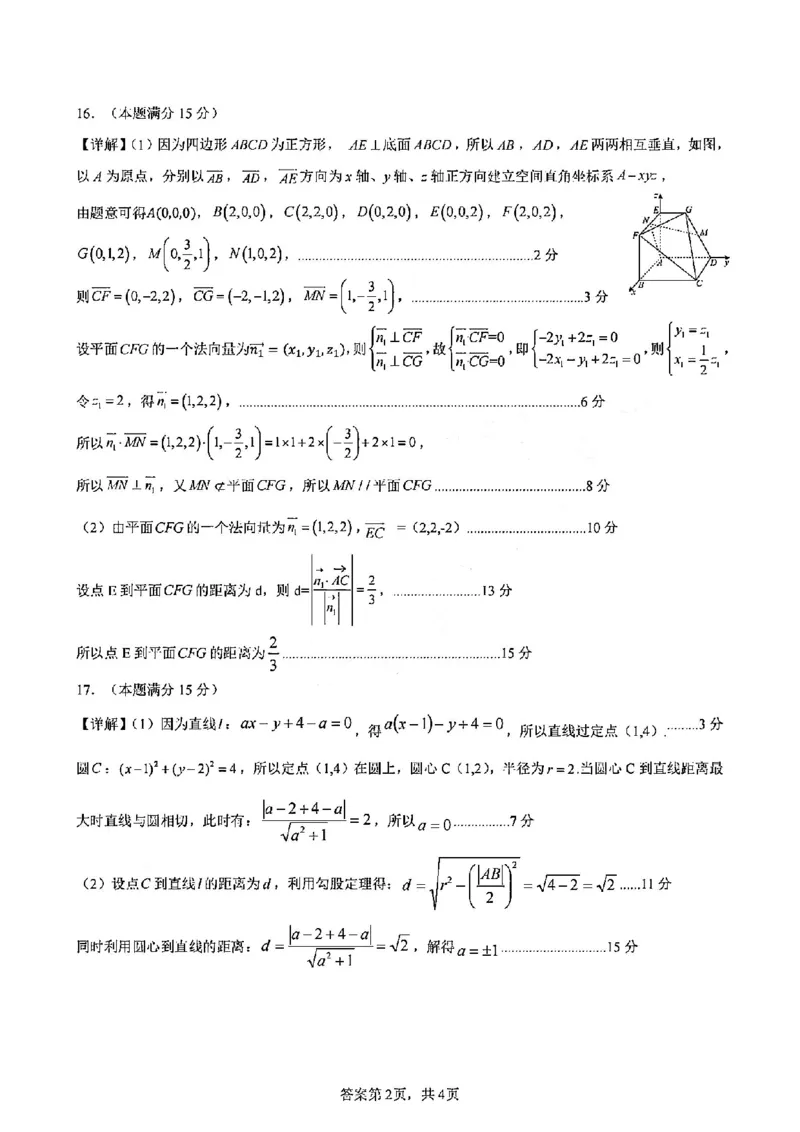 16. （本题满分 15 分）
【详解】（1）因为四边形 ABCD 为正方形， AE⊥底面 ABCD，所以 AB，AD，AE 两两相互垂直，如图，
以 A 为原点，分别以 $\overrightarrow{AB}$，$\overrightarrow{AD}$，$\overrightarrow{AE}$ 方向为 x 轴、y 轴、z 轴正方向建立空间直角坐标系 A−xyz，
由题意可得 A(0,0,0)，B(2,0,0)，C(2,2,0)，D(0,2,0)，E(0,0,2)，F(2,0,2)，
G(0,1,2)，$M\left(0,\frac{3}{2},1\right)$，N(1,0,2)，……2 分
z E G N M F A D y B C x
则 $\overrightarrow{CF}=(0,-2,2)$，$\overrightarrow{CG}=(-2,-1,2)$，$\overrightarrow{MN}=\left(1,-\frac{3}{2},1\right)$，……3 分
设平面 CFG 的一个法向量为 $\overrightarrow{n_1}=(x_1,y_1,z_1)$，则 $\begin{cases}\overrightarrow{n_1}\perp\overrightarrow{CF}\\ \overrightarrow{n_1}\perp\overrightarrow{CG}\end{cases}$，故 $\begin{cases}\overrightarrow{n_1}\cdot\overrightarrow{CF}=0\\ \overrightarrow{n_1}\cdot\overrightarrow{CG}=0\end{cases}$，即 $\begin{cases}-2y_1+2z_1=0\\ -2x_1-y_1+2z_1=0\end{cases}$，则 $\begin{cases}y_1=z_1\\ x_1=\frac{1}{2}z_1\end{cases}$，
令 $z_1=2$，得 $\overrightarrow{n_1}=(1,2,2)$，……6 分
所以 $\overrightarrow{n_1}\cdot\overrightarrow{MN}=(1,2,2)\cdot\left(1,-\frac{3}{2},1\right)=1\times1+2\times\left(-\frac{3}{2}\right)+2\times1=0$，
所以 $\overrightarrow{MN}\perp\overrightarrow{n_1}$，又 MN⊄平面 CFG，所以 MN//平面 CFG……8 分
（2）由平面 CFG 的一个法向量为 $\overrightarrow{n_1}=(1,2,2)$，$\overrightarrow{EC}$ =（2,2,-2）……10 分
设点 E 到平面 CFG 的距离为 d，则 d=$\left|\frac{\overrightarrow{n_1}\cdot\overrightarrow{AC}}{|\overrightarrow{n_1}|}\right|=\frac{2}{3}$，……13 分
所以点 E 到平面 CFG 的距离为 $\frac{2}{3}$……15 分
17. （本题满分 15 分）
【详解】（1）因为直线 l：$ax-y+4-a=0$，得 $a(x-1)-y+4=0$，所以直线过定点（1,4）.……3 分
圆 C：$(x-1)^2+(y-2)^2=4$，所以定点（1,4）在圆上，圆心 C（1,2），半径为 r=2.当圆心 C 到直线距离最
大时直线与圆相切，此时有：$\frac{|a-2+4-a|}{\sqrt{a^2+1}}=2$，所以 $a=0$……7 分
（2）设点 C 到直线 l 的距离为 d，利用勾股定理得：$d=\sqrt{r^2-\left(\frac{|AB|}{2}\right)^2}=\sqrt{4-2}=\sqrt{2}$……11 分
同时利用圆心到直线的距离：$d=\frac{|a-2+4-a|}{\sqrt{a^2+1}}=\sqrt{2}$，解得 $a=\pm1$……15 分
答案第 2 页，共 4 页